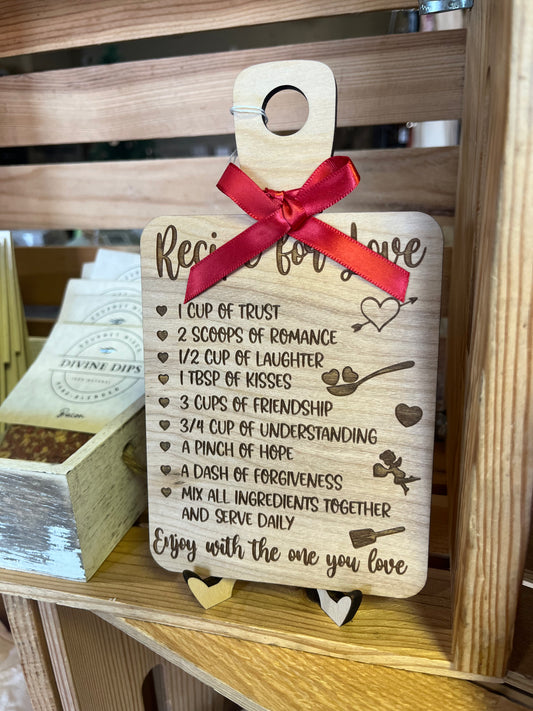 Recipe for Love
1 CUP OF TRUST
2 SCOOPS OF ROMANCE
1/2 CUP OF LAUGHTER
1 TBSP OF KISSES
3 CUPS OF FRIENDSHIP
3/4 CUP OF UNDERSTANDING
A PINCH OF HOPE
A DASH OF FORGIVENESS
MIX ALL INGREDIENTS TOGETHER
AND SERVE DAILY
Enjoy with the one you love
DIVINE DIPS
Bacon